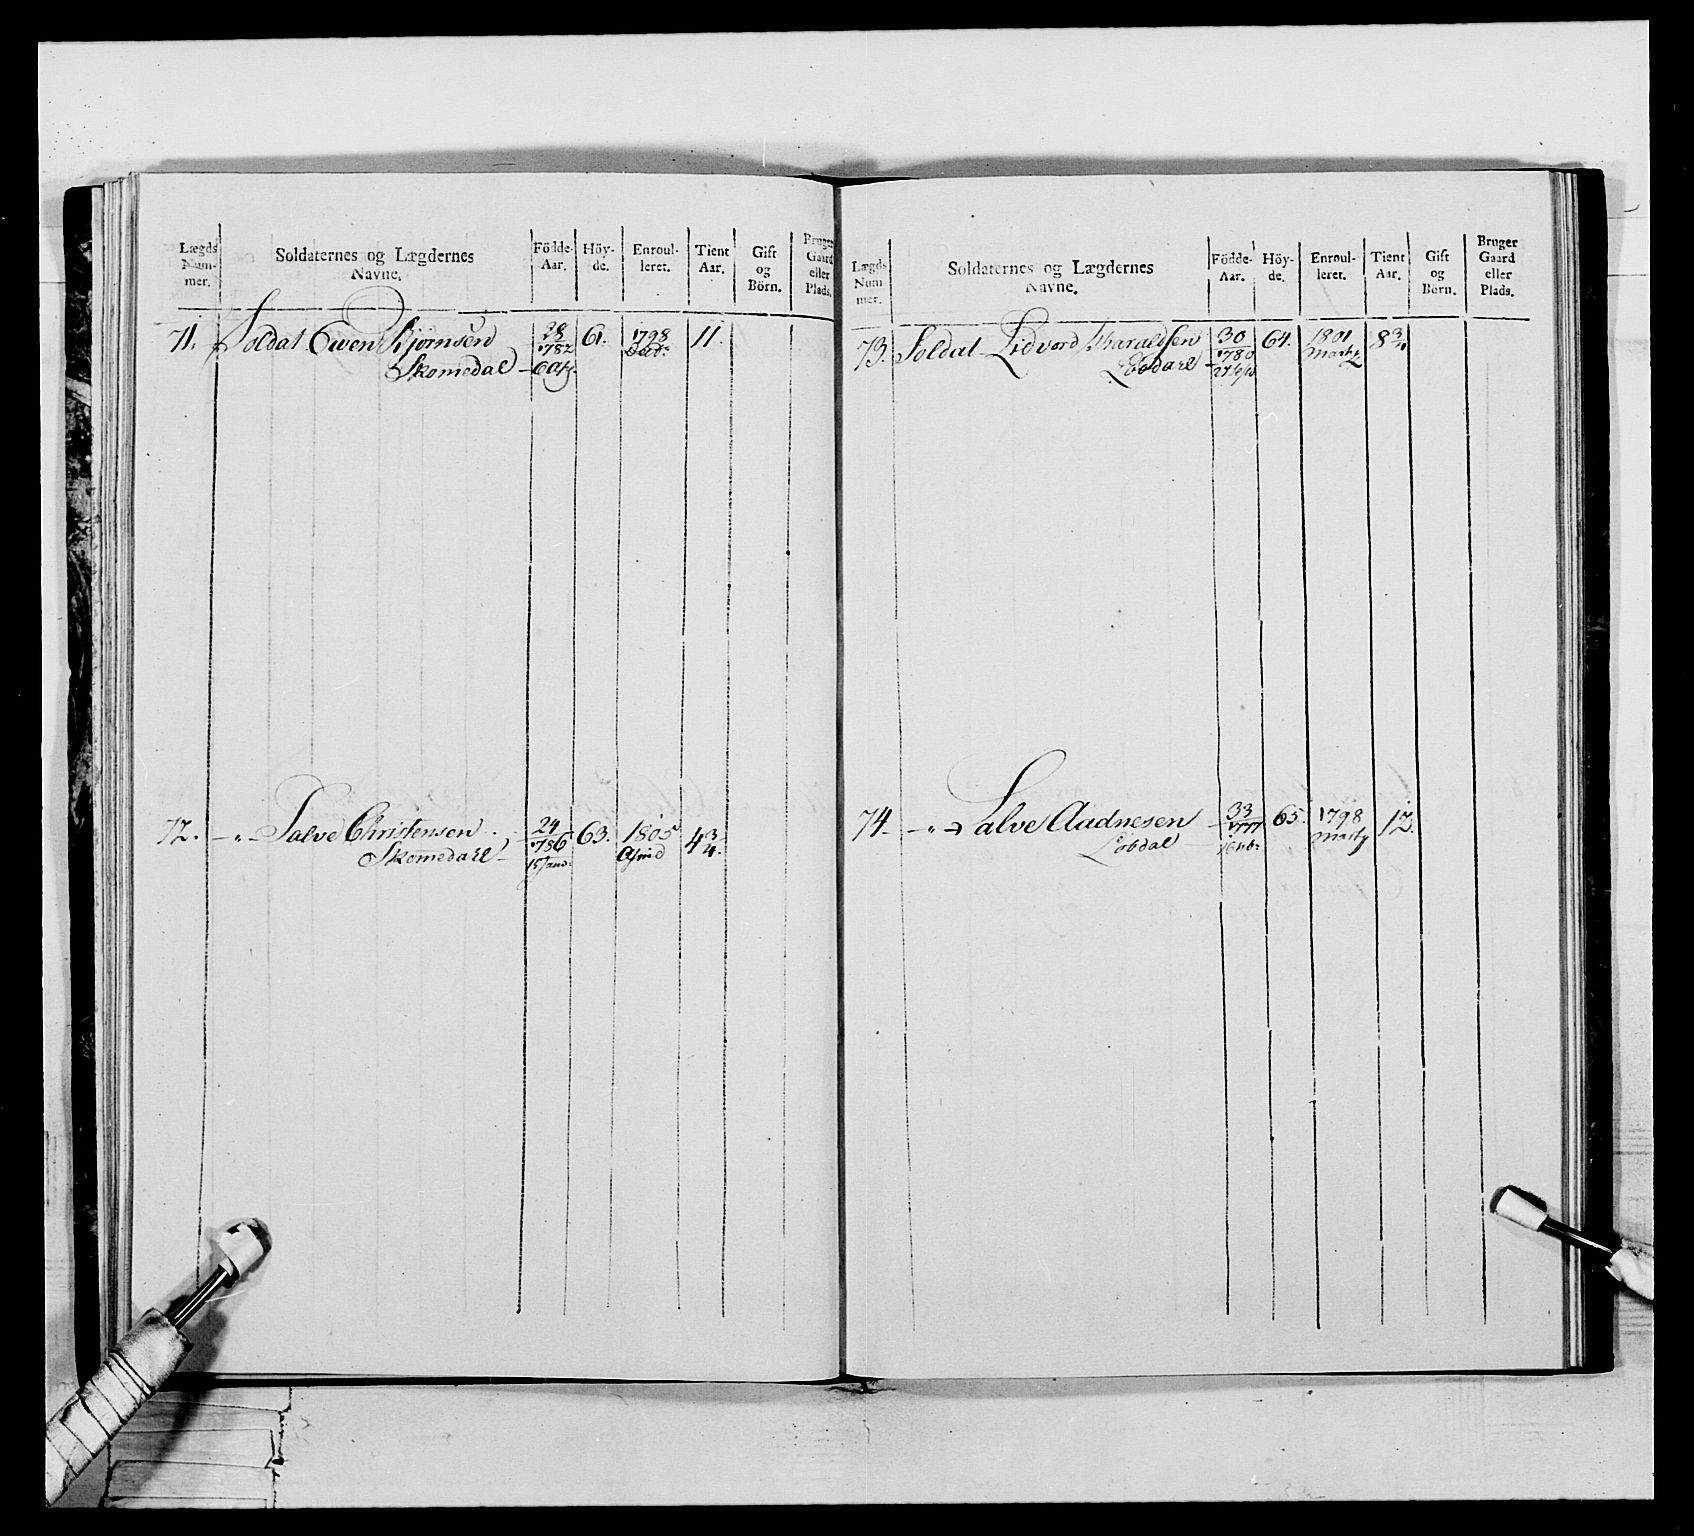 Lægds Num- mer.
Soldaternes og Lægdernes Navne.
Födde- Aar.
Höy- de.
Enroul- leret.
Tient Aar.
Gift og Börn.
Bruger Gaard eller Plads.
71. Soldat Even Bjørnsen 28 61. 1798 11.
Skomedal 1782
72. — „ — Salve Christensen. 24 63. 1805 4 3/4.
Skomedal 1786
15 Janu:
Lægds Num mer.
Soldaternes og Lægdernes Navne.
Födde- Aar.
Höy- de.
Enroul- leret.
Tient Aar.
Gift og Börn.
Bruger Gaard eller Plads.
73. Soldat Lidvord Haraldsen 30 64. 1801 8 3/4
1780 Martz
74. — „ — Salve Aadnesen 33 65. 1798 12.
Lobdal 1777 Martz